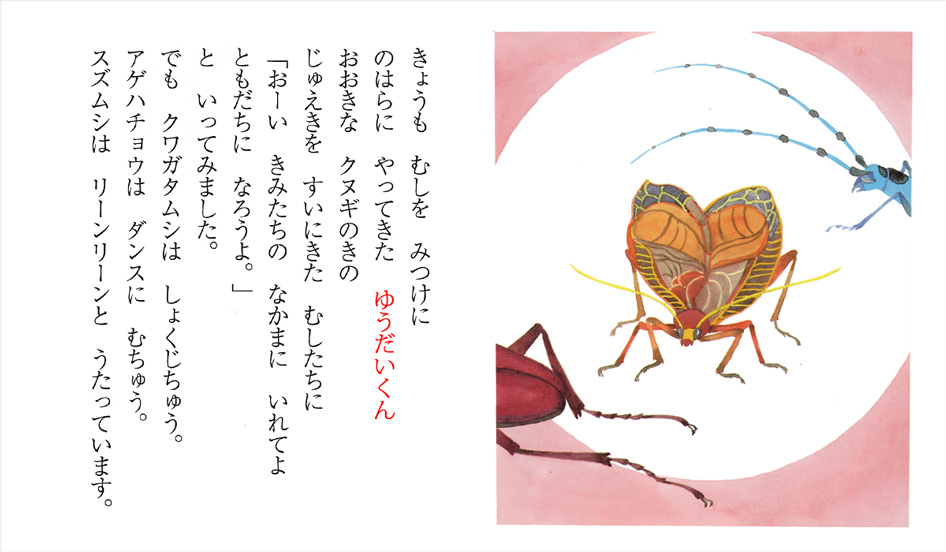 きょうも　むしを　みつけに
のはらに　やってきた　ゆうだいくん
おおきな　クヌギのきの
じゅえきを　すいにきた　むしたちに
「おーい　きみたちの　なかまに　いれてよ
ともだちに　なろうよ。」
と　いってみました。
でも　クワガタムシは　しょくじちゅう。
アゲハチョウは　ダンスに　むちゅう。
スズムシは　リーンリーンと　うたっています。